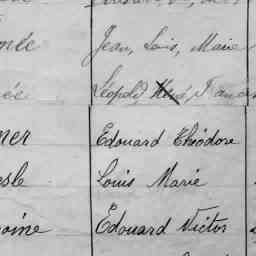 née Jean, Louis, Marie
ée Léopold René, Franco
ner Edouard Théodore
esle Louis Marie
oine Édouard Victor